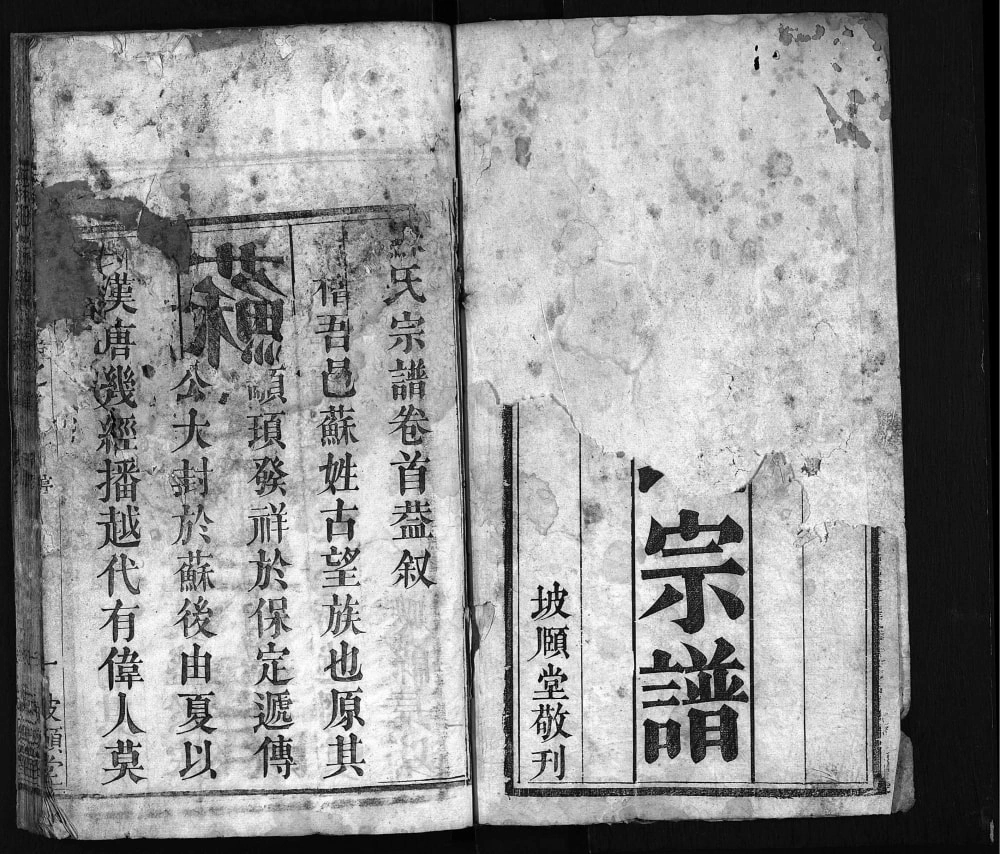 宗譜
坡頤堂敬刊
氏宗譜卷首葢叙
稽吾邑蘇姓古望族也原其
蘇
頊發祥於保定遞傳
公大封於蘇後由夏以
漢唐幾經播越代有偉人莫